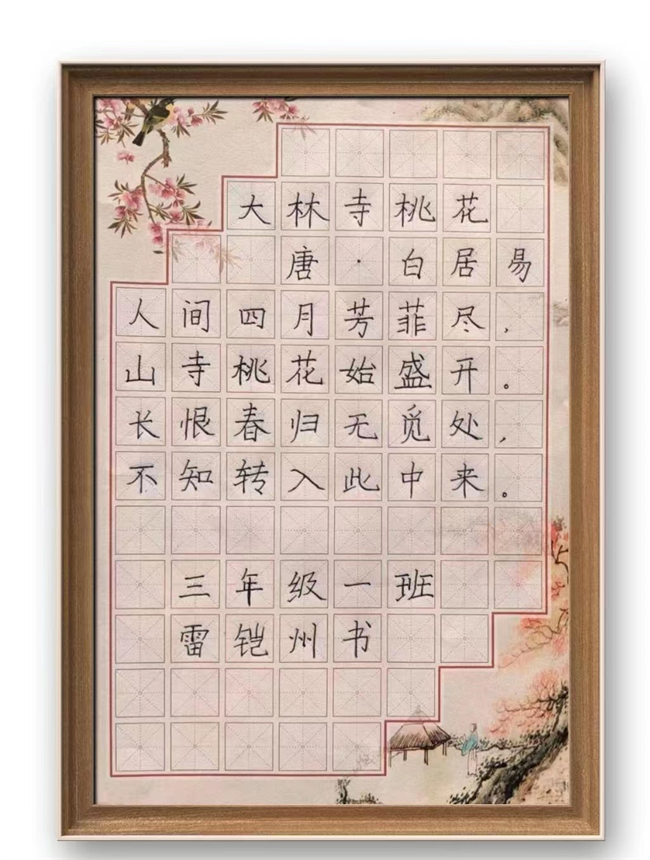 大林寺桃花
唐·白居易
人间四月芳菲尽，
山寺桃花始盛开。
长恨春归无觅处，
不知转入此中来。
三年级一班
雷铠州书